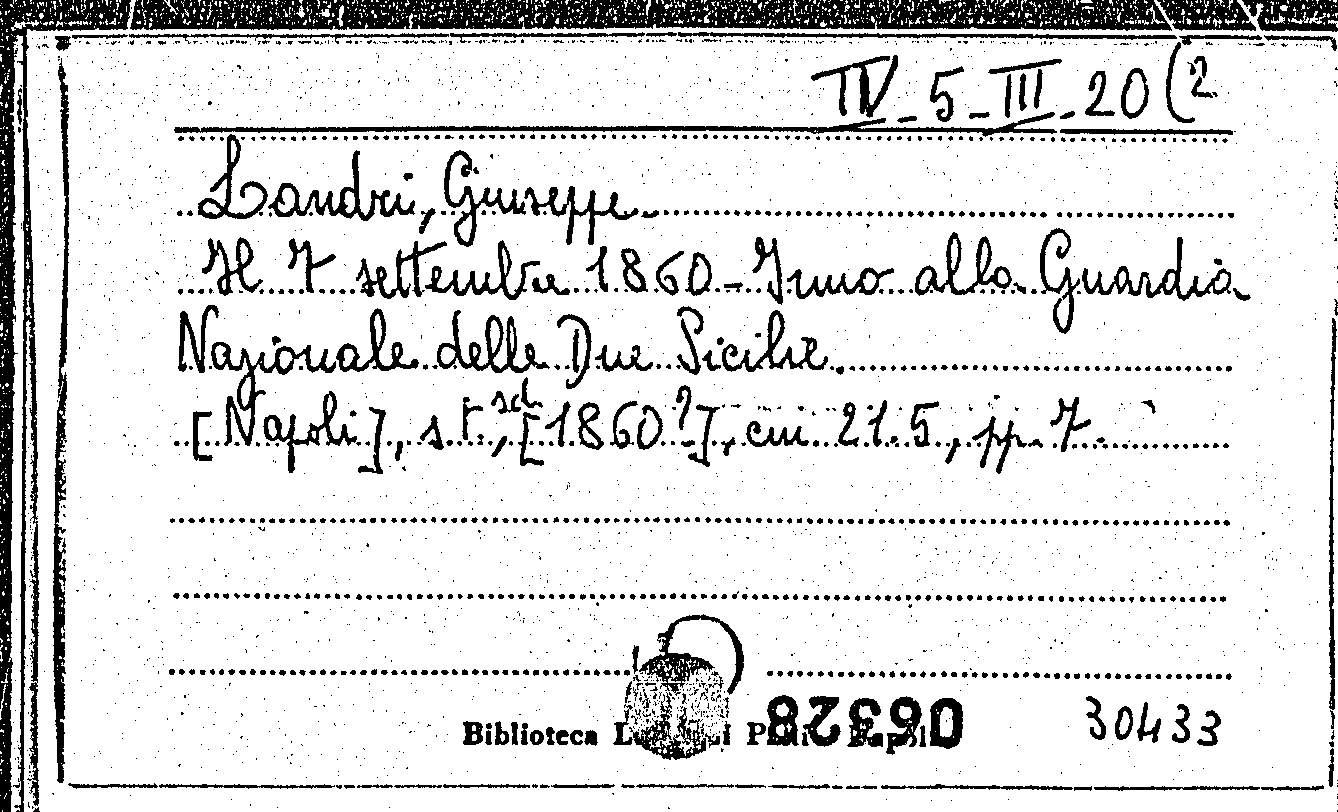 IV-5-III-20(2
Landri, Giuseppe.
Il 7 settembre 1860 - Inno alla Guardia
Nazionale delle Due Sicilie.
[Napoli], s.t., sd. [1860?], cm 21.5, pp. 7.
Biblioteca
06328
30433